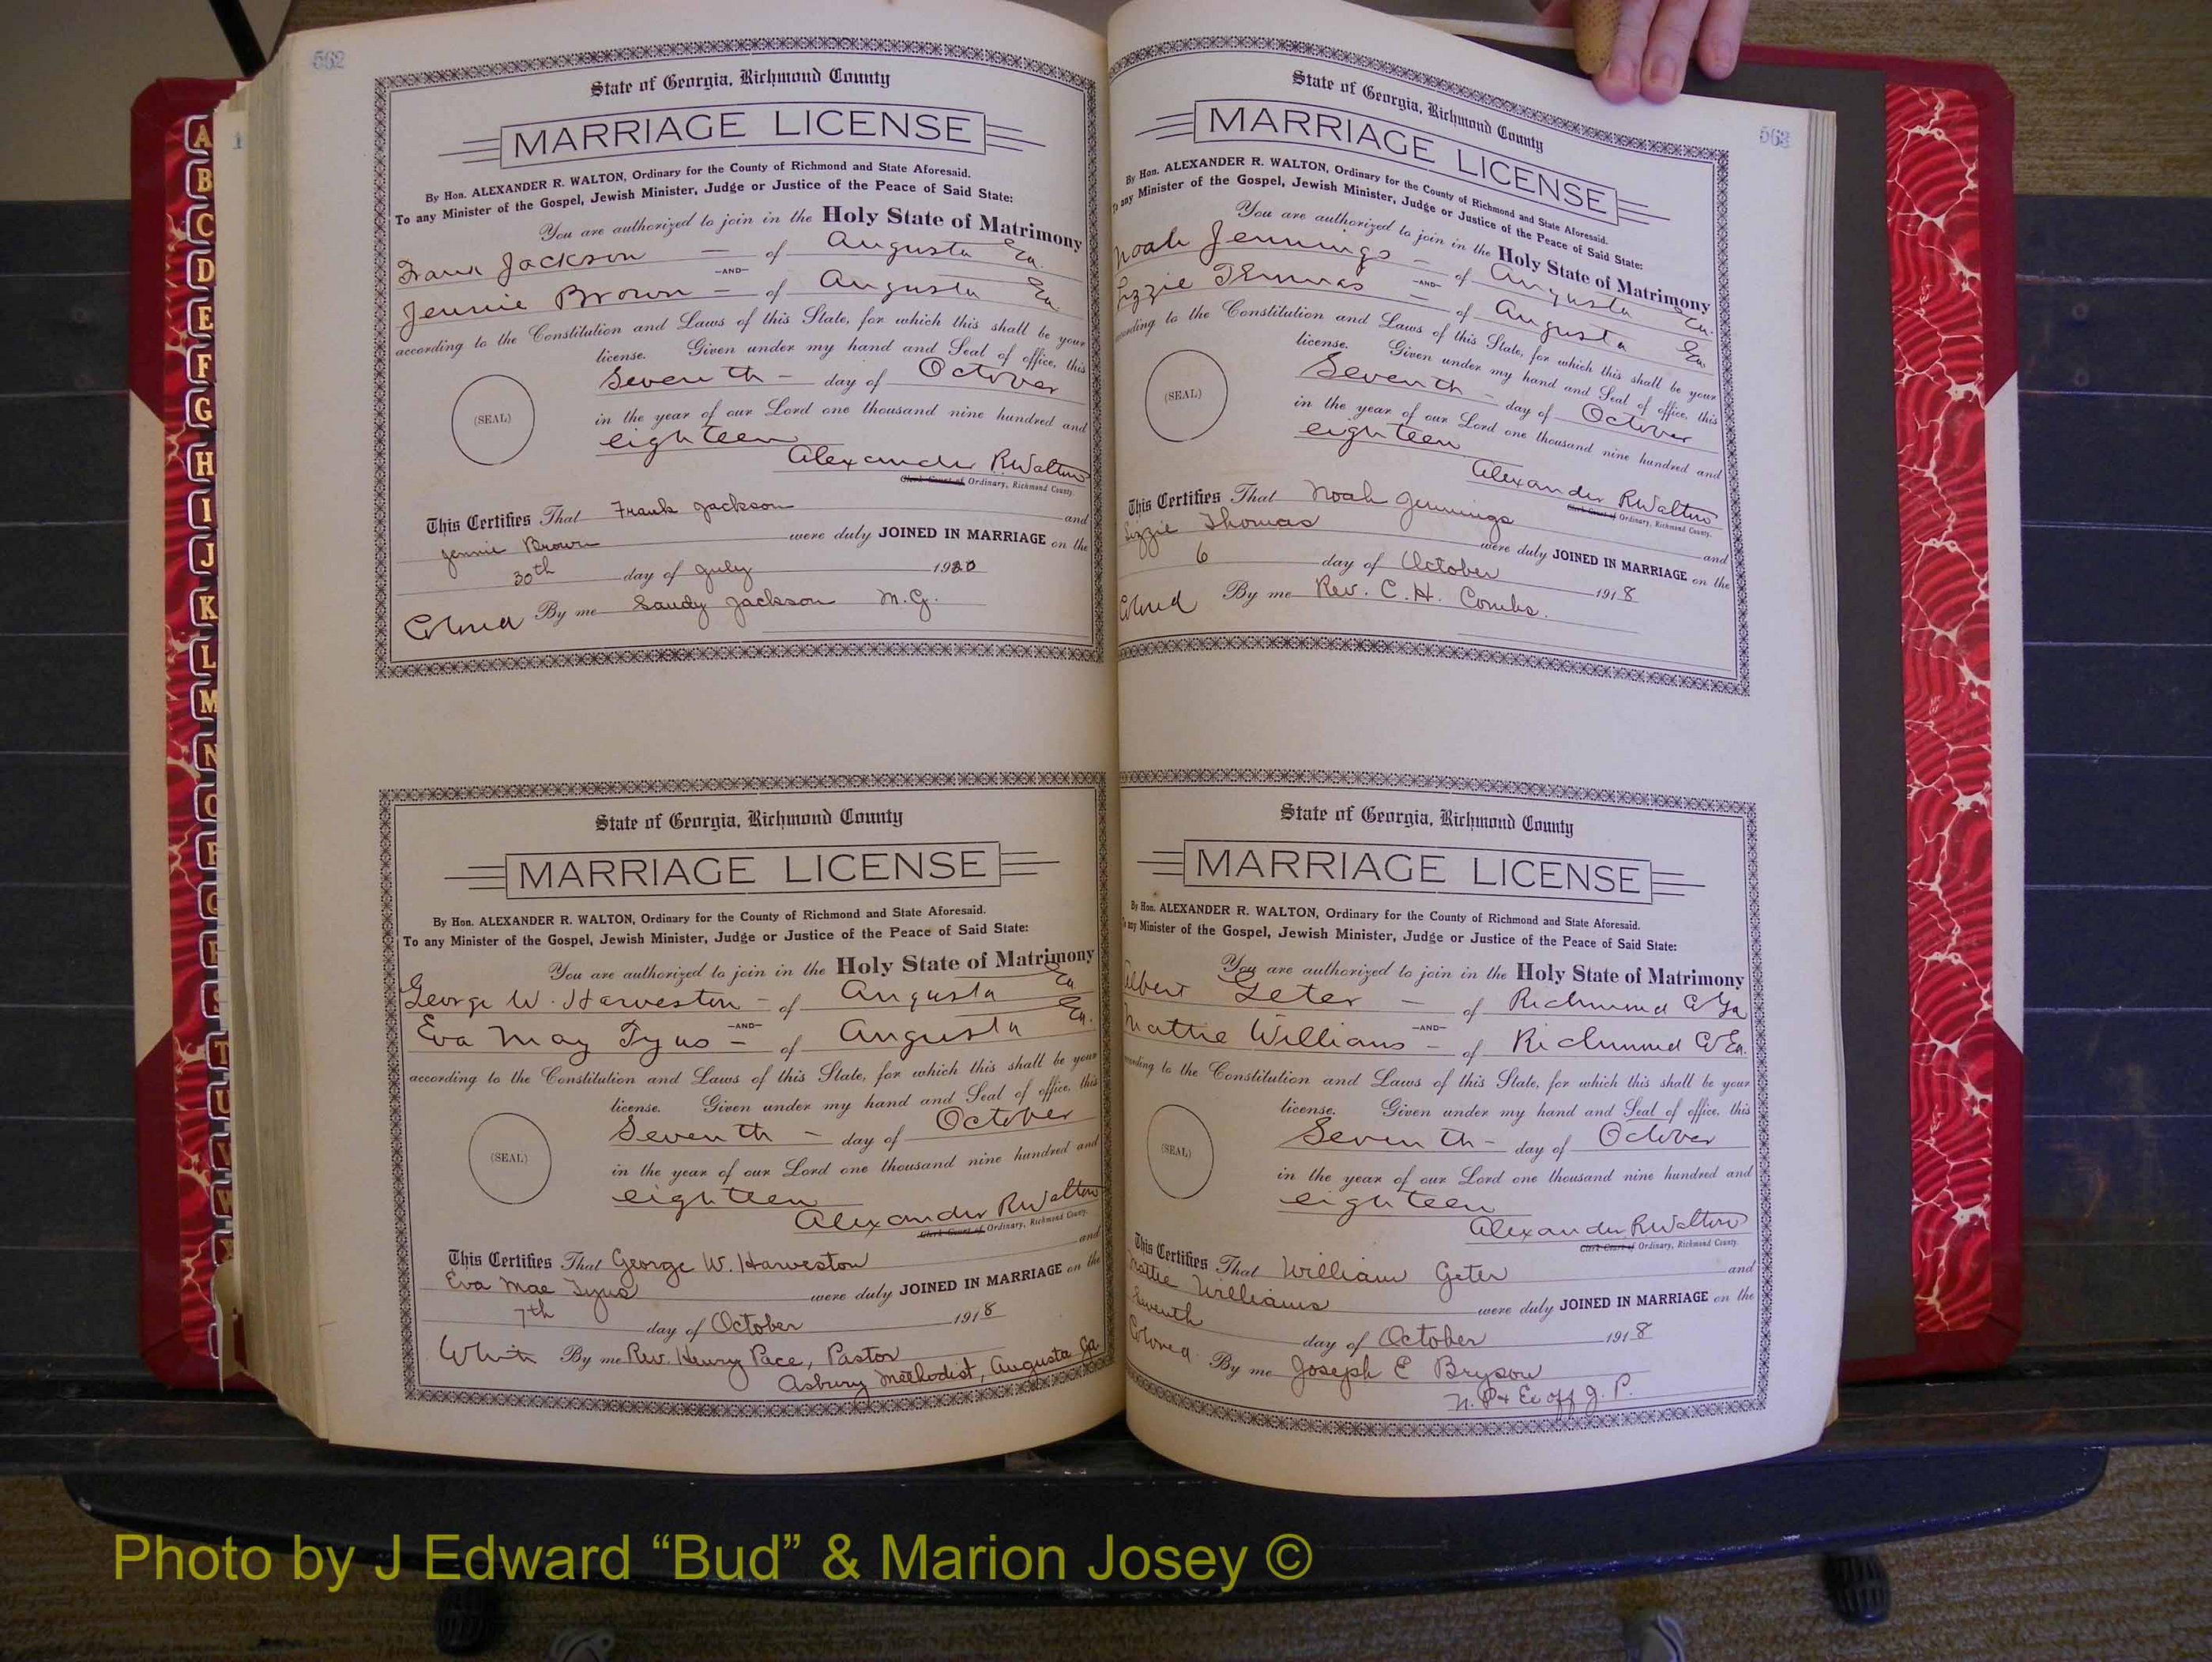 562
State of Georgia, Richmond County
MARRIAGE LICENSE
By Hon. ALEXANDER R. WALTON, Ordinary for the County of Richmond and State Aforesaid.
To any Minister of the Gospel, Jewish Minister, Judge or Justice of the Peace of Said State:
You are authorized to join in the Holy State of Matrimony
Frank Jackson — of Augusta Ga.
—AND—
Jennie Brown — of Augusta Ga.
according to the Constitution and Laws of this State, for which this shall be your
license. Given under my hand and Seal of office, this
Seventh — day of October
(SEAL)
in the year of our Lord one thousand nine hundred and
eighteen
Alexander R Walton
Clerk Court of Ordinary, Richmond County.
This Certifies That Frank Jackson and
Jennie Brown were duly JOINED IN MARRIAGE on the
30th day of July 1920
Colored By me Sandy Jackson M.G.
State of Georgia, Richmond County
MARRIAGE LICENSE
By Hon. ALEXANDER R. WALTON, Ordinary for the County of Richmond and State Aforesaid.
To any Minister of the Gospel, Jewish Minister, Judge or Justice of the Peace of Said State:
You are authorized to join in the Holy State of Matrimony
George W. Harveston — of Augusta Ga.
—AND—
Eva May Tyus — of Augusta Ga.
according to the Constitution and Laws of this State, for which this shall be your
license. Given under my hand and Seal of office, this
Seventh — day of October
(SEAL)
in the year of our Lord one thousand nine hundred and
eighteen
Alexander R Walton
Clerk Court of Ordinary, Richmond County.
This Certifies That George W. Harveston and
Eva Mae Tyus were duly JOINED IN MARRIAGE on the
7th day of October 1918
White By me Rev. Henry Pace, Pastor
Asbury Methodist, Augusta Ga.
563
State of Georgia, Richmond County
MARRIAGE LICENSE
By Hon. ALEXANDER R. WALTON, Ordinary for the County of Richmond and State Aforesaid.
To any Minister of the Gospel, Jewish Minister, Judge or Justice of the Peace of Said State:
You are authorized to join in the Holy State of Matrimony
Noah Jennings — of Augusta Ga.
—AND—
Lizzie Thomas — of Augusta Ga.
according to the Constitution and Laws of this State, for which this shall be your
license. Given under my hand and Seal of office, this
Seventh — day of October
(SEAL)
in the year of our Lord one thousand nine hundred and
eighteen
Alexander R Walton
Clerk Court of Ordinary, Richmond County.
This Certifies That Noah Jennings and
Lizzie Thomas were duly JOINED IN MARRIAGE on the
6 day of October 1918
Colored By me Rev. C. H. Combs.
State of Georgia, Richmond County
MARRIAGE LICENSE
By Hon. ALEXANDER R. WALTON, Ordinary for the County of Richmond and State Aforesaid.
To any Minister of the Gospel, Jewish Minister, Judge or Justice of the Peace of Said State:
You are authorized to join in the Holy State of Matrimony
Albert Geter — of Richmond Co Ga
—AND—
Mattie Williams — of Richmond Co Ga.
according to the Constitution and Laws of this State, for which this shall be your
license. Given under my hand and Seal of office, this
Seventh — day of October
(SEAL)
in the year of our Lord one thousand nine hundred and
eighteen
Alexander R Walton
Clerk Court of Ordinary, Richmond County.
This Certifies That William Geter and
Mattie Williams were duly JOINED IN MARRIAGE on the
Seventh day of October 1918
Colored By me Joseph E Bryson
N. P. & Ex off J. P.
A
B
C
D
E
F
G
H
I
J
K
L
M
N
O
P
Q
R
S
T
U
V
W
Photo by J Edward “Bud” & Marion Josey ©